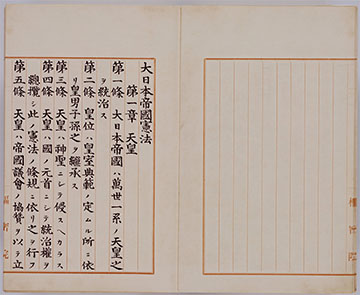 大日本帝國憲法
第一章 天皇
第一條 大日本帝國ハ萬世一系ノ天皇之
ヲ統治ス
第二條 皇位ハ皇室典範ノ定ムル所ニ依
リ皇男子孫之ヲ繼承ス
第三條 天皇ハ神聖ニシテ侵スヘカラス
第四條 天皇ハ國ノ元首ニシテ統治權ヲ
總攬シ此ノ憲法ノ條規ニ依リ之ヲ行フ
第五條 天皇ハ帝國議會ノ協贊ヲ以テ立